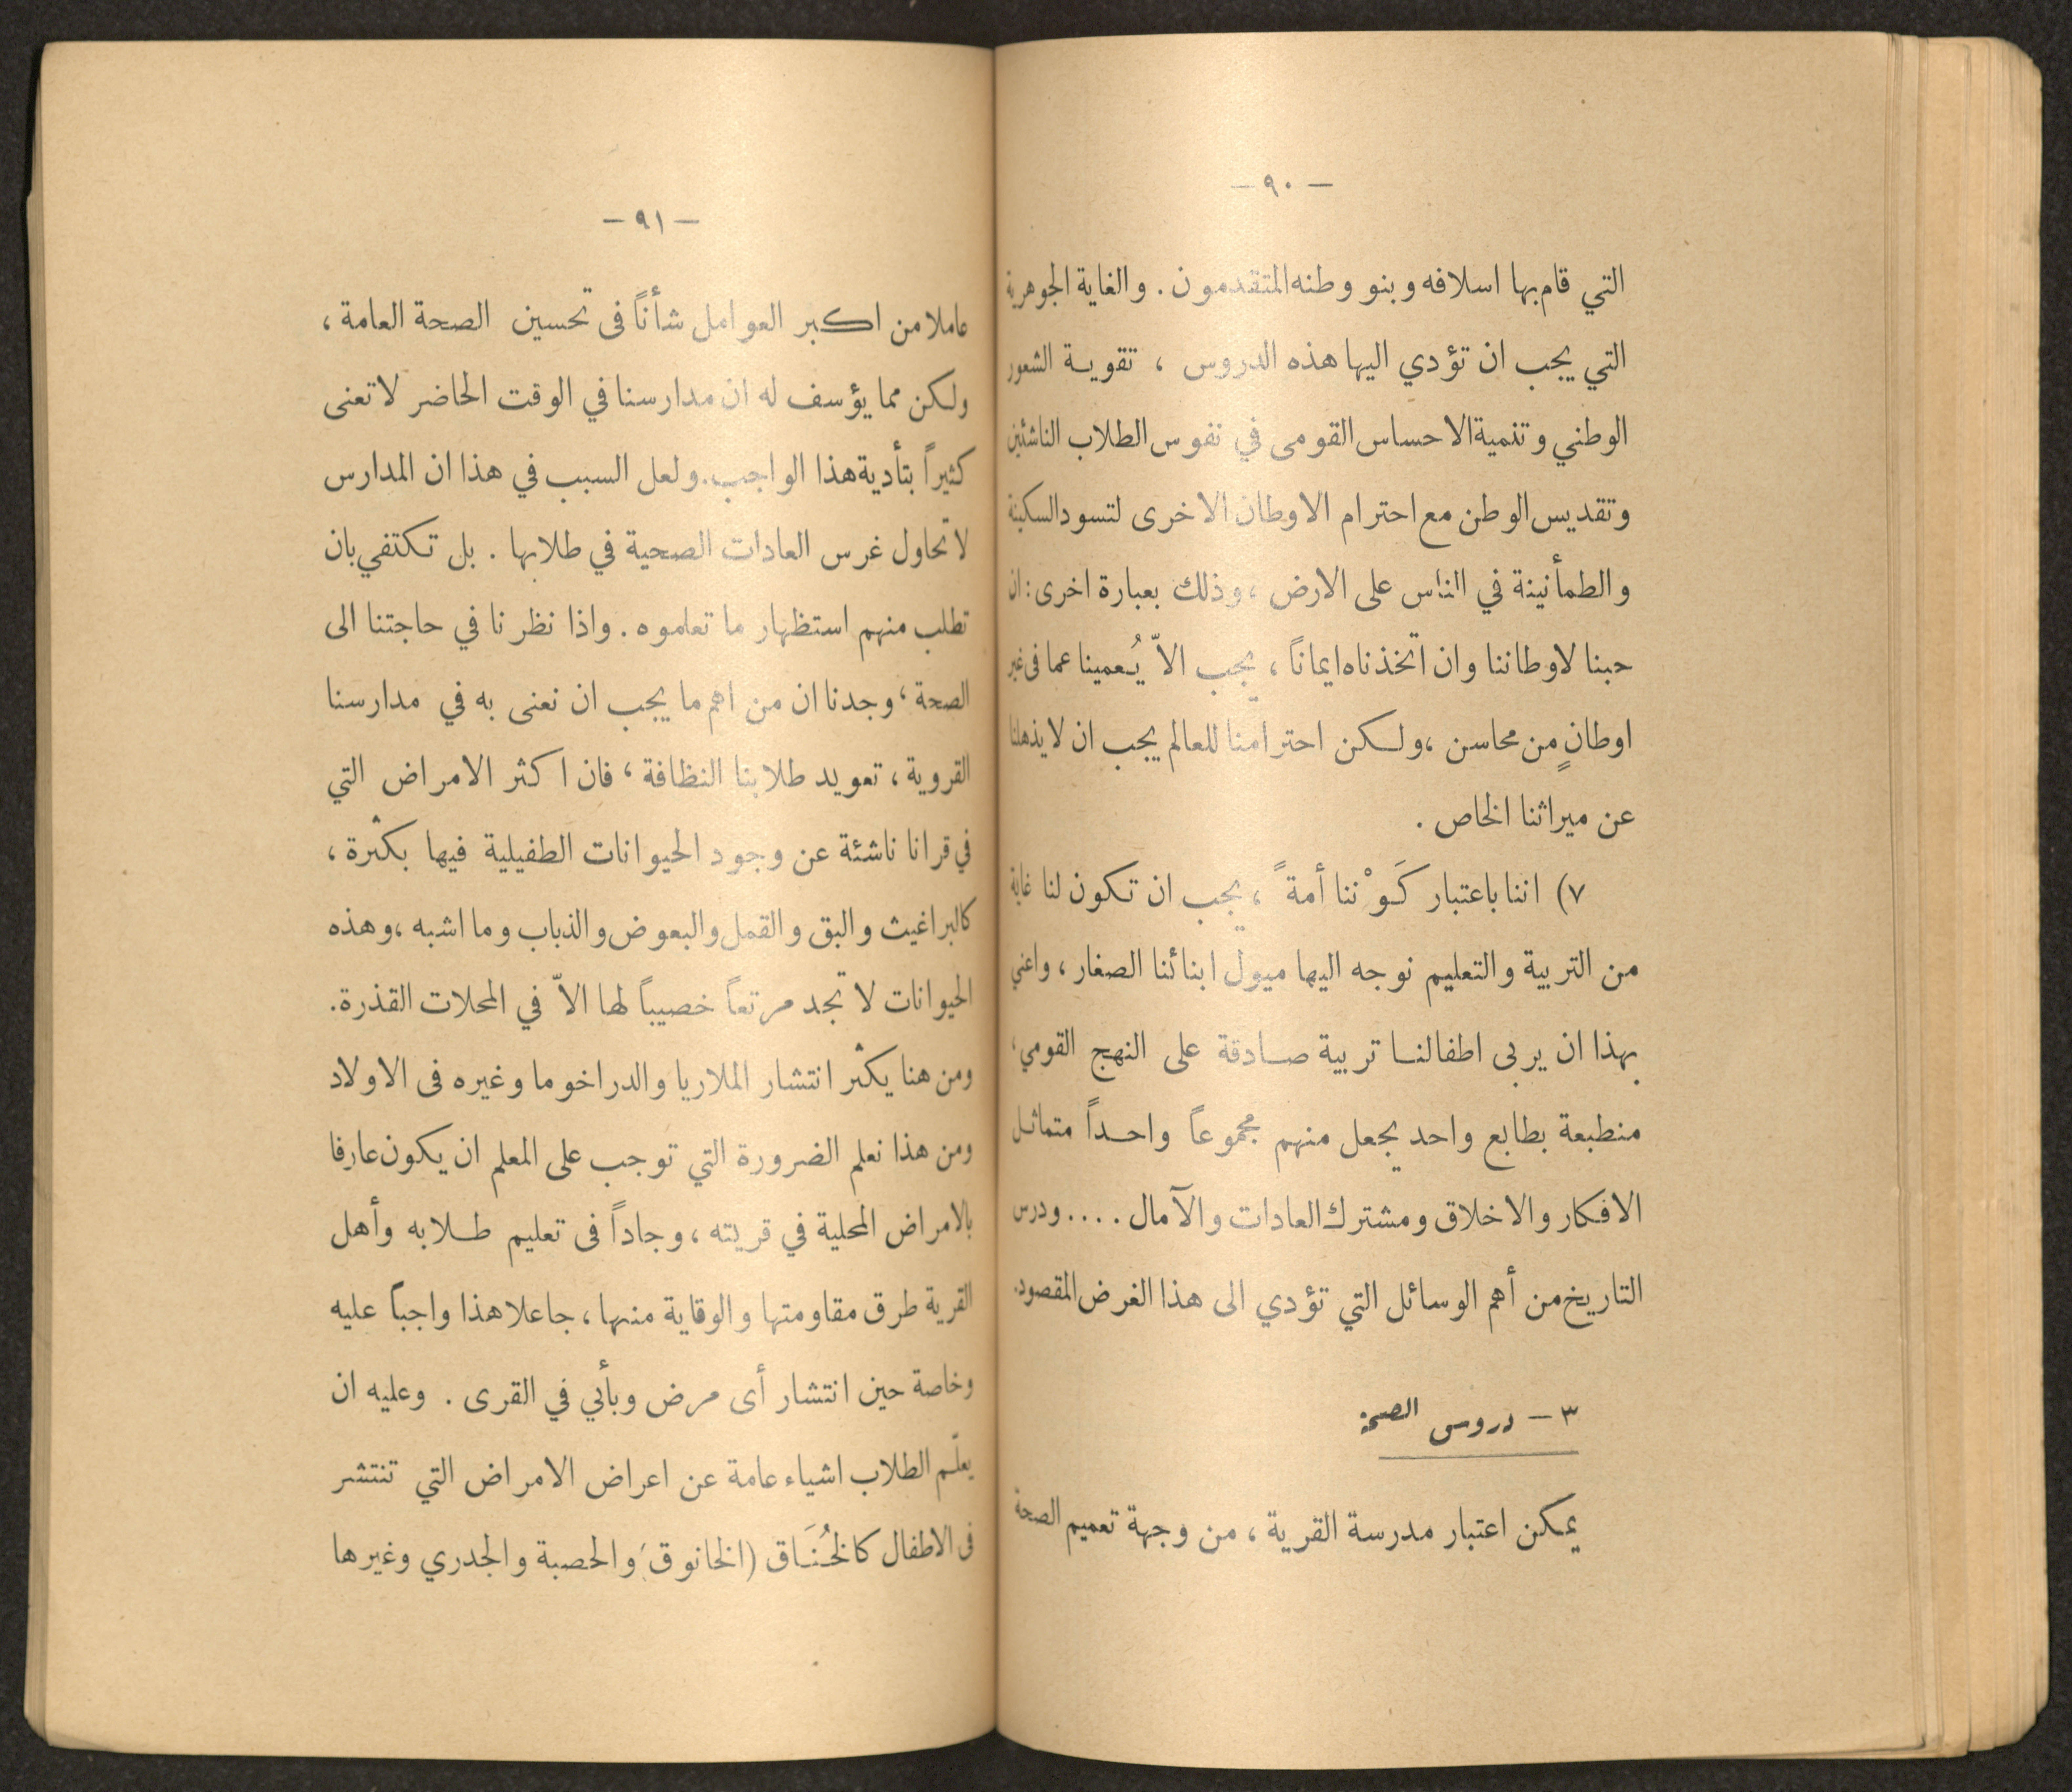 — ٩٠ —
التي قام بها اسلافه وبنو وطنه المتقدمون . والغاية الجوهرية
التي يجب ان تؤدي اليها هذه الدروس ، تقويـة الشعور
الوطني وتنمية الاحساس القومى في نفوس الطلاب الناشئين
وتقديس الوطن مع احترام الاوطان الاخرى لتسود السكينة
والطمأنينة في الناس على الارض ، وذلك بعبارة اخرى : ان
حبنا لاوطاننا وان اتخذناه ايماناً ، يجب الاّ يُعمينا عما فى غير
اوطانٍ من محاسن ، ولـكن احترامنا للعالم يجب ان لا يذهلنا
عن ميراثنا الخاص .
٧) اننا باعتبار كَوْننا أمةً ، يجب ان تكون لنا غاية
من التربية والتعليم نوجه اليها ميول ابنائنا الصغار ، واعني
بهذا ان يربى اطفالنـا تربية صـادقة على النهج القومي ،
منطبعة بطابع واحد يجعل منهم مجموعاً واحـداً متماثـل
الافكار والاخلاق ومشترك العادات والآمال .... ودرس
التاريخ من أهم الوسائل التي تؤدي الى هذا الغرض المقصود .
٣ – دروس الصحة
يمكن اعتبار مدرسة القرية ، من وجهة تعميم الصحة
— ٩١ —
عاملا من اكبر العوامل شأناً فى تحسين الصحة العامة ،
ولكن مما يؤسف له ان مدارسنا في الوقت الحاضر لا تعنى
كثيراً بتأدية هذا الواجب . ولعل السبب في هذا ان المدارس
لا تحاول غرس العادات الصحية في طلابها . بل تكتفي بان
تطلب منهم استظهار ما تعلموه . واذا نظرنا في حاجتنا الى
الصحة ، وجدنا ان من اهم ما يجب ان نعنى به في مدارسنا
القروية ، تعويد طلابنا النظافة ، فان اكثر الامراض التي
في قرانا ناشئة عن وجود الحيوانات الطفيلية فيها بكثرة ،
كالبراغيث والبق والقمل والبعوض والذباب وما اشبه ، وهذه
الحيوانات لا تجد مرتعاً خصيباً لها الاّ في المحلات القذرة .
ومن هنا يكثر انتشار الملاريا والدراخوما وغيره فى الاولاد
ومن هذا نعلم الضرورة التي توجب على المعلم ان يكون عارفا
بالامراض المحلية في قريته ، وجاداً فى تعليم طـلابه وأهل
القرية طرق مقاومتها والوقاية منها ، جاعلا هذا واجباً عليه
وخاصة حين انتشار أى مرض وبأئي في القرى . وعليه ان
يعلّم الطلاب اشياء عامة عن اعراض الامراض التي تنتشر
فى الاطفال كالخُنَاق (الخانوق) والحصبة والجدري وغيرها